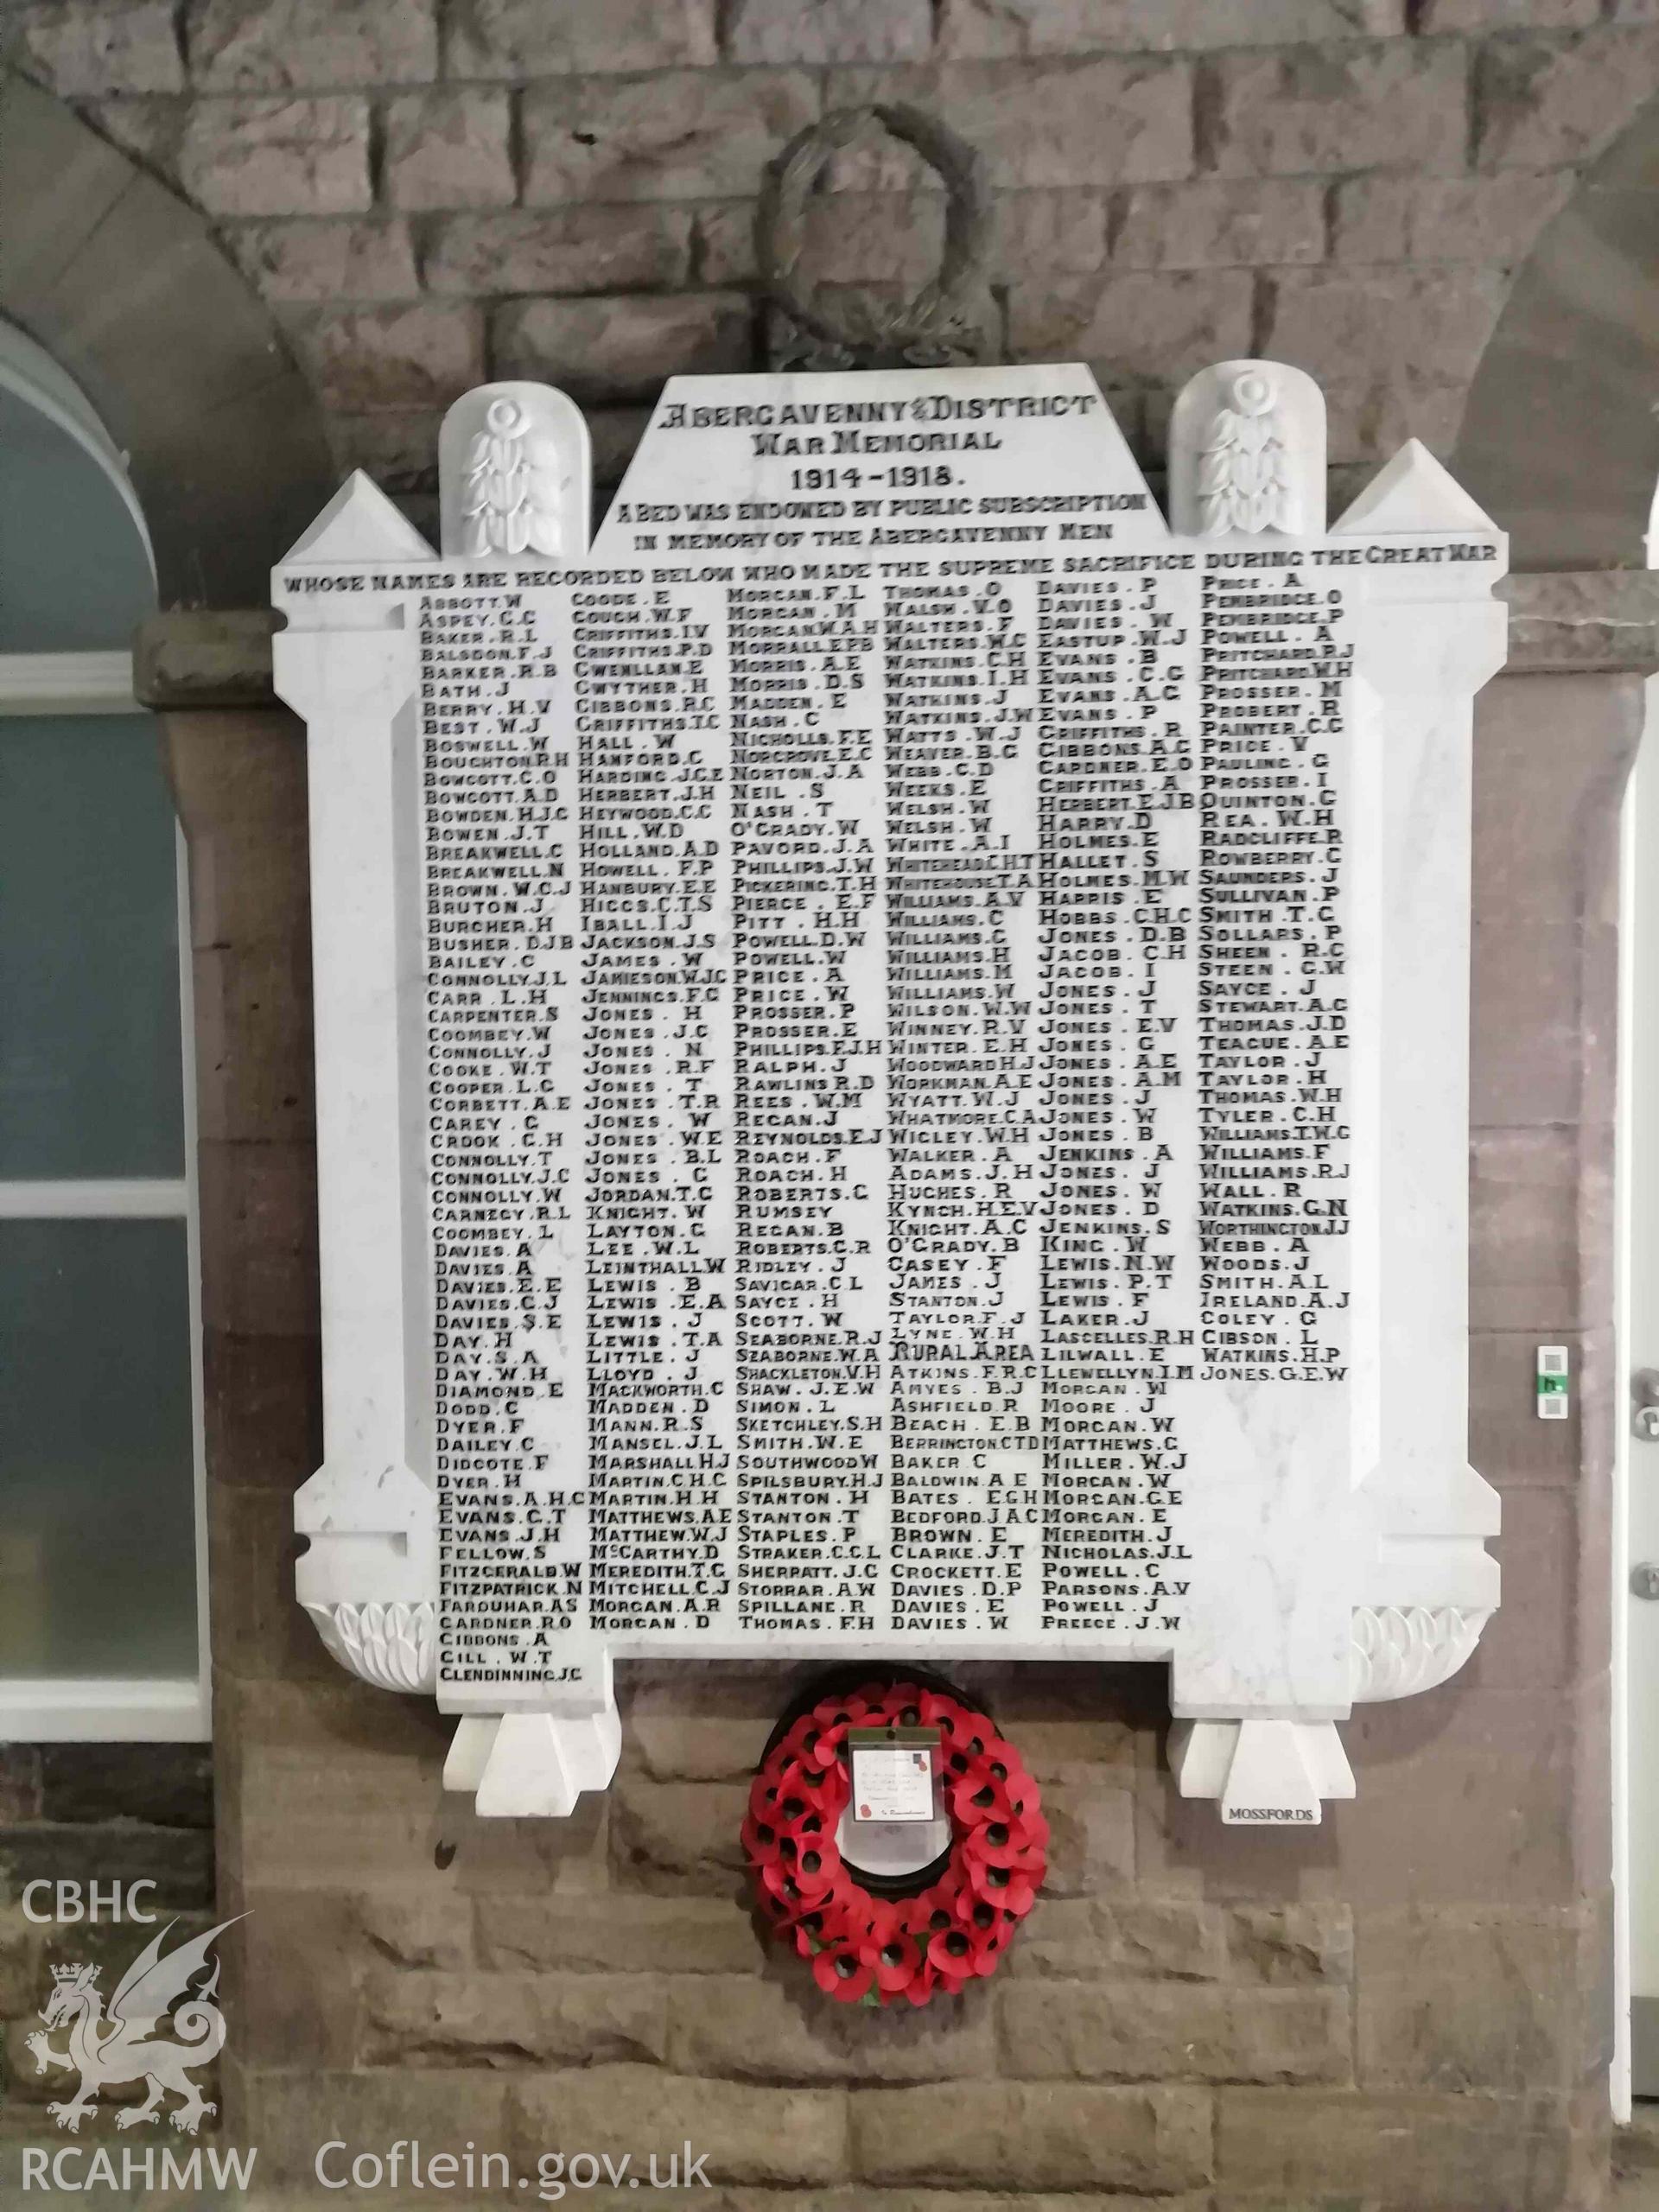 ABERGAVENNY & DISTRICT
WAR MEMORIAL
1914-1918.
A BED WAS ENDOWED BY PUBLIC SUBSCRIPTION
IN MEMORY OF THE ABERGAVENNY MEN
WHOSE NAMES ARE RECORDED BELOW WHO MADE THE SUPREME SACRIFICE DURING THE GREAT WAR
ABBOTT.W
ASPEY.C.C
BAKER.R.L
BALSDON.F.J
BARKER.R.B
BATH.J
BERRY.H.V
BEST.W.J
BOSWELL.W
BOUGHTON.R.H
BOWCOTT.C.O
BOWCOTT.A.D
BOWDEN.H.J.G
BOWEN.J.T
BREAKWELL.C
BREAKWELL.N
BROWN.W.C.J
BRUTON.J
BURCHER.H
BUSHER.D.J.B
BAILEY.C
CONNOLLY.J.L
CARR.L.H
CARPENTER.S
COOMBEY.W
CONNOLLY.J
COOKE.W.T
COOPER.L.G
CORBETT.A.E
CAREY.G
CROOK.G.H
CONNOLLY.T
CONNOLLY.J.C
CONNOLLY.W
CARNEGY.R.L
COOMBEY.L
DAVIES.A
DAVIES.A
DAVIES.E.E
DAVIES.G.J
DAVIES.S.E
DAY.H
DAY.S.A
DAY.W.H
DIAMOND.E
DODD.C
DYER.F
DAILEY.C
DIDCOTE.F
DYER.H
EVANS.A.H.C
EVANS.G.T
EVANS.J.H
FELLOW.S
FITZGERALD.W
FITZPATRICK.N
FARQUHAR.A.S
GARDNER.R.O
GIBBONS.A
GILL.W.T
GLENDINNING.J.G
GOODE.E
GOUGH.W.F
GRIFFITHS.I.V
GRIFFITHS.P.D
GWENLLAN.E
GWYTHER.H
GIBBONS.R.C
GRIFFITHS.T.C
HALL.W
HANFORD.C
HARDING.J.G.E
HERBERT.J.H
HEYWOOD.C.C
HILL.W.D
HOLLAND.A.D
HOWELL.F.P
HANBURY.E.E
HIGGS.C.T.S
IBALL.I.J
JACKSON.J.S
JAMES.W
JAMIESON.W.J.C
JENNINGS.F.G
JONES.H
JONES.J.C
JONES.N
JONES.R.F
JONES.T
JONES.T.R
JONES.W
JONES.W.E
JONES.B.L
JONES.G
JORDAN.T.G
KNIGHT.W
LAYTON.G
LEE.W.L
LEINTHALL.W
LEWIS.B
LEWIS.E.A
LEWIS.J
LEWIS.T.A
LITTLE.J
LLOYD.J
MACKWORTH.C
MADDEN.D
MANN.R.S
MANSEL.J.L
MARSHALL.H.J
MARTIN.C.H.C
MARTIN.H.H
MATTHEWS.A.E
MATTHEW.W.J
McCARTHY.D
MEREDITH.T.G
MITCHELL.C.J
MORGAN.A.R
MORGAN.D
MORGAN.F.L
MORGAN.M
MORGAN.W.A.H
MORRALL.E.P.B
MORRIS.A.E
MORRIS.D.S
MADDEN.E
NASH.C
NICHOLLS.F.E
NORGROVE.E.C
NORTON.J.A
NEIL.S
NASH.T
O'GRADY.W
PAVORD.J.A
PHILLIPS.J.W
PICKERING.T.H
PIERCE.E.F
PITT.H.H
POWELL.D.W
POWELL.W
PRICE.A
PRICE.W
PROSSER.P
PROSSER.E
PHILLIPS.F.J.H
RALPH.J
RAWLINS R.D
REES.W.M
REGAN.J
REYNOLDS.E.J
ROACH.F
ROACH.H
ROBERTS.G
RUMSEY
REGAN.B
ROBERTS.C.R
RIDLEY.J
SAVIGAR.C.L
SAYCE.H
SCOTT.W
SEABORNE.R.J
SEABORNE.W.A
SHACKLETON.V.H
SHAW.J.E.W
SIMON.L
SKETCHLEY.S.H
SMITH.W.E
SOUTHWOOD W
SPILSBURY.H.J
STANTON.H
STANTON.T
STAPLES.P
STRAKER.G.C.L
SHERRATT.J.G
STORRAR.A.W
SPILLANE.R
THOMAS.F.H
THOMAS.O
WALSH.V.O
WALTERS.F
WALTERS.W.C
WATKINS.C.H
WATKINS.I.H
WATKINS.J
WATKINS.J.W
WATTS.W.J
WEAVER.B.G
WEBB.C.D
WEEKS.E
WELSH.W
WELSH.W
WHITE.A.I
WHITEHEAD.C.H.T
WHITEHOUSE.T.A
WILLIAMS.A.V
WILLIAMS.C
WILLIAMS.G
WILLIAMS.H
WILLIAMS.M
WILLIAMS.W
WILSON.W.W
WINNEY.R.V
WINTER.E.H
WOODWARD H.J
WORKMAN.A.E
WYATT.W.J
WHATMORE.C.A
WIGLEY.W.H
WALKER.A
ADAMS.J.H
HUGHES.R
KYNCH.H.E.V
KNIGHT.A.C
O'GRADY.B
CASEY.F
JAMES.J
STANTON.J
TAYLOR.F.J
LYNE.W.H
RURAL AREA
ATKINS.F.R.C
AMYES.B.J
ASHFIELD.R
BEACH.E.B
BERRINGTON.C.T.D
BAKER C
BALDWIN.A E
BATES.E.G.H
BEDFORD.J.A.C
BROWN.E
CLARKE.J.T
CROCKETT.E
DAVIES.D.P
DAVIES.E
DAVIES.W
DAVIES.P
DAVIES.J
DAVIES.W
EASTUP.W.J
EVANS.B
EVANS.C.G
EVANS.A.G
EVANS.P
GRIFFITHS.R
GIBBONS.A.G
GARDNER.E.O
GRIFFITHS.A
HERBERT.E.J.B
HARRY.D
HOLMES.E
HALLET.S
HOLMES.M.W
HARRIS.E
HOBBS.C.H.C
JONES.D.B
JACOB.C.H
JACOB.I
JONES.J
JONES.T
JONES.E.V
JONES.G
JONES.A.E
JONES.A.M
JONES.J
JONES.W
JONES.B
JENKINS.A
JONES.J
JONES.W
JONES.D
JENKINS.S
KING.W
LEWIS.N.W
LEWIS.P.T
LEWIS.F
LAKER.J
LASCELLES.R.H
LILWALL.E
LLEWELLYN.I.M
MORGAN.W
MOORE.J
MORGAN.W
MATTHEWS.G
MILLER.W.J
MORGAN.W
MORGAN.G.E
MORGAN.E
MEREDITH.J
NICHOLAS.J.L
POWELL.C
PARSONS.A.V
POWELL.J
PREECE.J.W
PRICE.A
PEMBRIDGE.O
PEMBRIDGE.P
POWELL.A
PRITCHARD.R.J
PRITCHARD.W.H
PROSSER.M
PROBERT.R
PAINTER.C.G
PRICE.V
PAULING.G
PROSSER.I
QUINTON.G
REA.W.H
RADCLIFFE.R
ROWBERRY.G
SAUNDERS.J
SULLIVAN.P
SMITH.T.G
SOLLARS.P
SHEEN.R.C
STEEN.G.W
SAYCE.J
STEWART.A.G
THOMAS.J.D
TEAGUE.A.E
TAYLOR.J
TAYLOR.H
THOMAS.W.H
TYLER.C.H
WILLIAMS.T.W.G
WILLIAMS.F
WILLIAMS.R.J
WALL.R
WATKINS.G.N
WORTHINGTON.J.J
WEBB.A
WOODS.J
SMITH.A.L
IRELAND.A.J
COLEY.G
GIBSON.L
WATKINS.H.P
JONES.G.E.W
MOSSFORDS
In Remembrance
CBHC
RCAHMW
Coflein.gov.uk